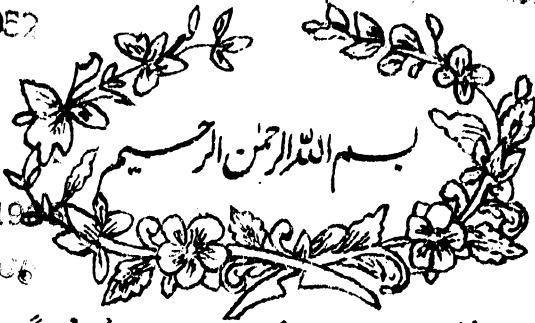 52
بسم اللہ الرحمٰن الرحیم
19